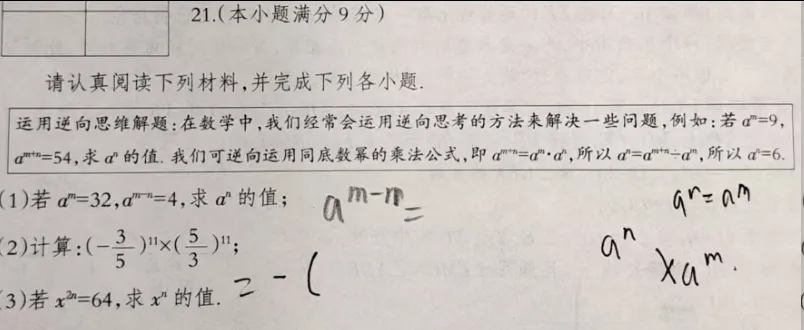 21.(本小题满分9分)
请认真阅读下列材料,并完成下列各小题.
运用逆向思维解题:在数学中,我们经常会运用逆向思考的方法来解决一些问题,例如:若 aᵐ=9,
aᵐ⁺ⁿ=54,求 aⁿ 的值. 我们可逆向运用同底数幂的乘法公式,即 aᵐ⁺ⁿ=aᵐ·aⁿ,所以 aⁿ=aᵐ⁺ⁿ÷aᵐ,所以 aⁿ=6.
(1)若 aᵐ=32,aᵐ⁻ⁿ=4,求 aⁿ 的值; aᵐ⁻ⁿ= aⁿ=aᵐ
(2)计算:(-3/5)¹¹×(5/3)¹¹; aⁿ ×aᵐ.
= -(
(3)若 x²ⁿ=64,求 xⁿ 的值.